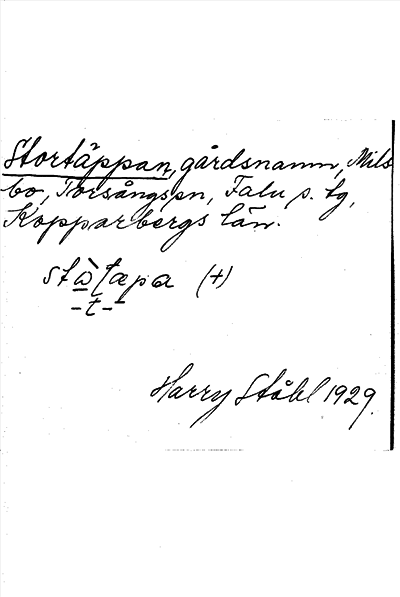 Stortäppan, gårdsnamn, Mils
bo, Torsångs sn, Falu s. tg,
Kopparbergs län.
stå̀tæpa (+)
-t-
Harry Ståhl 1929.